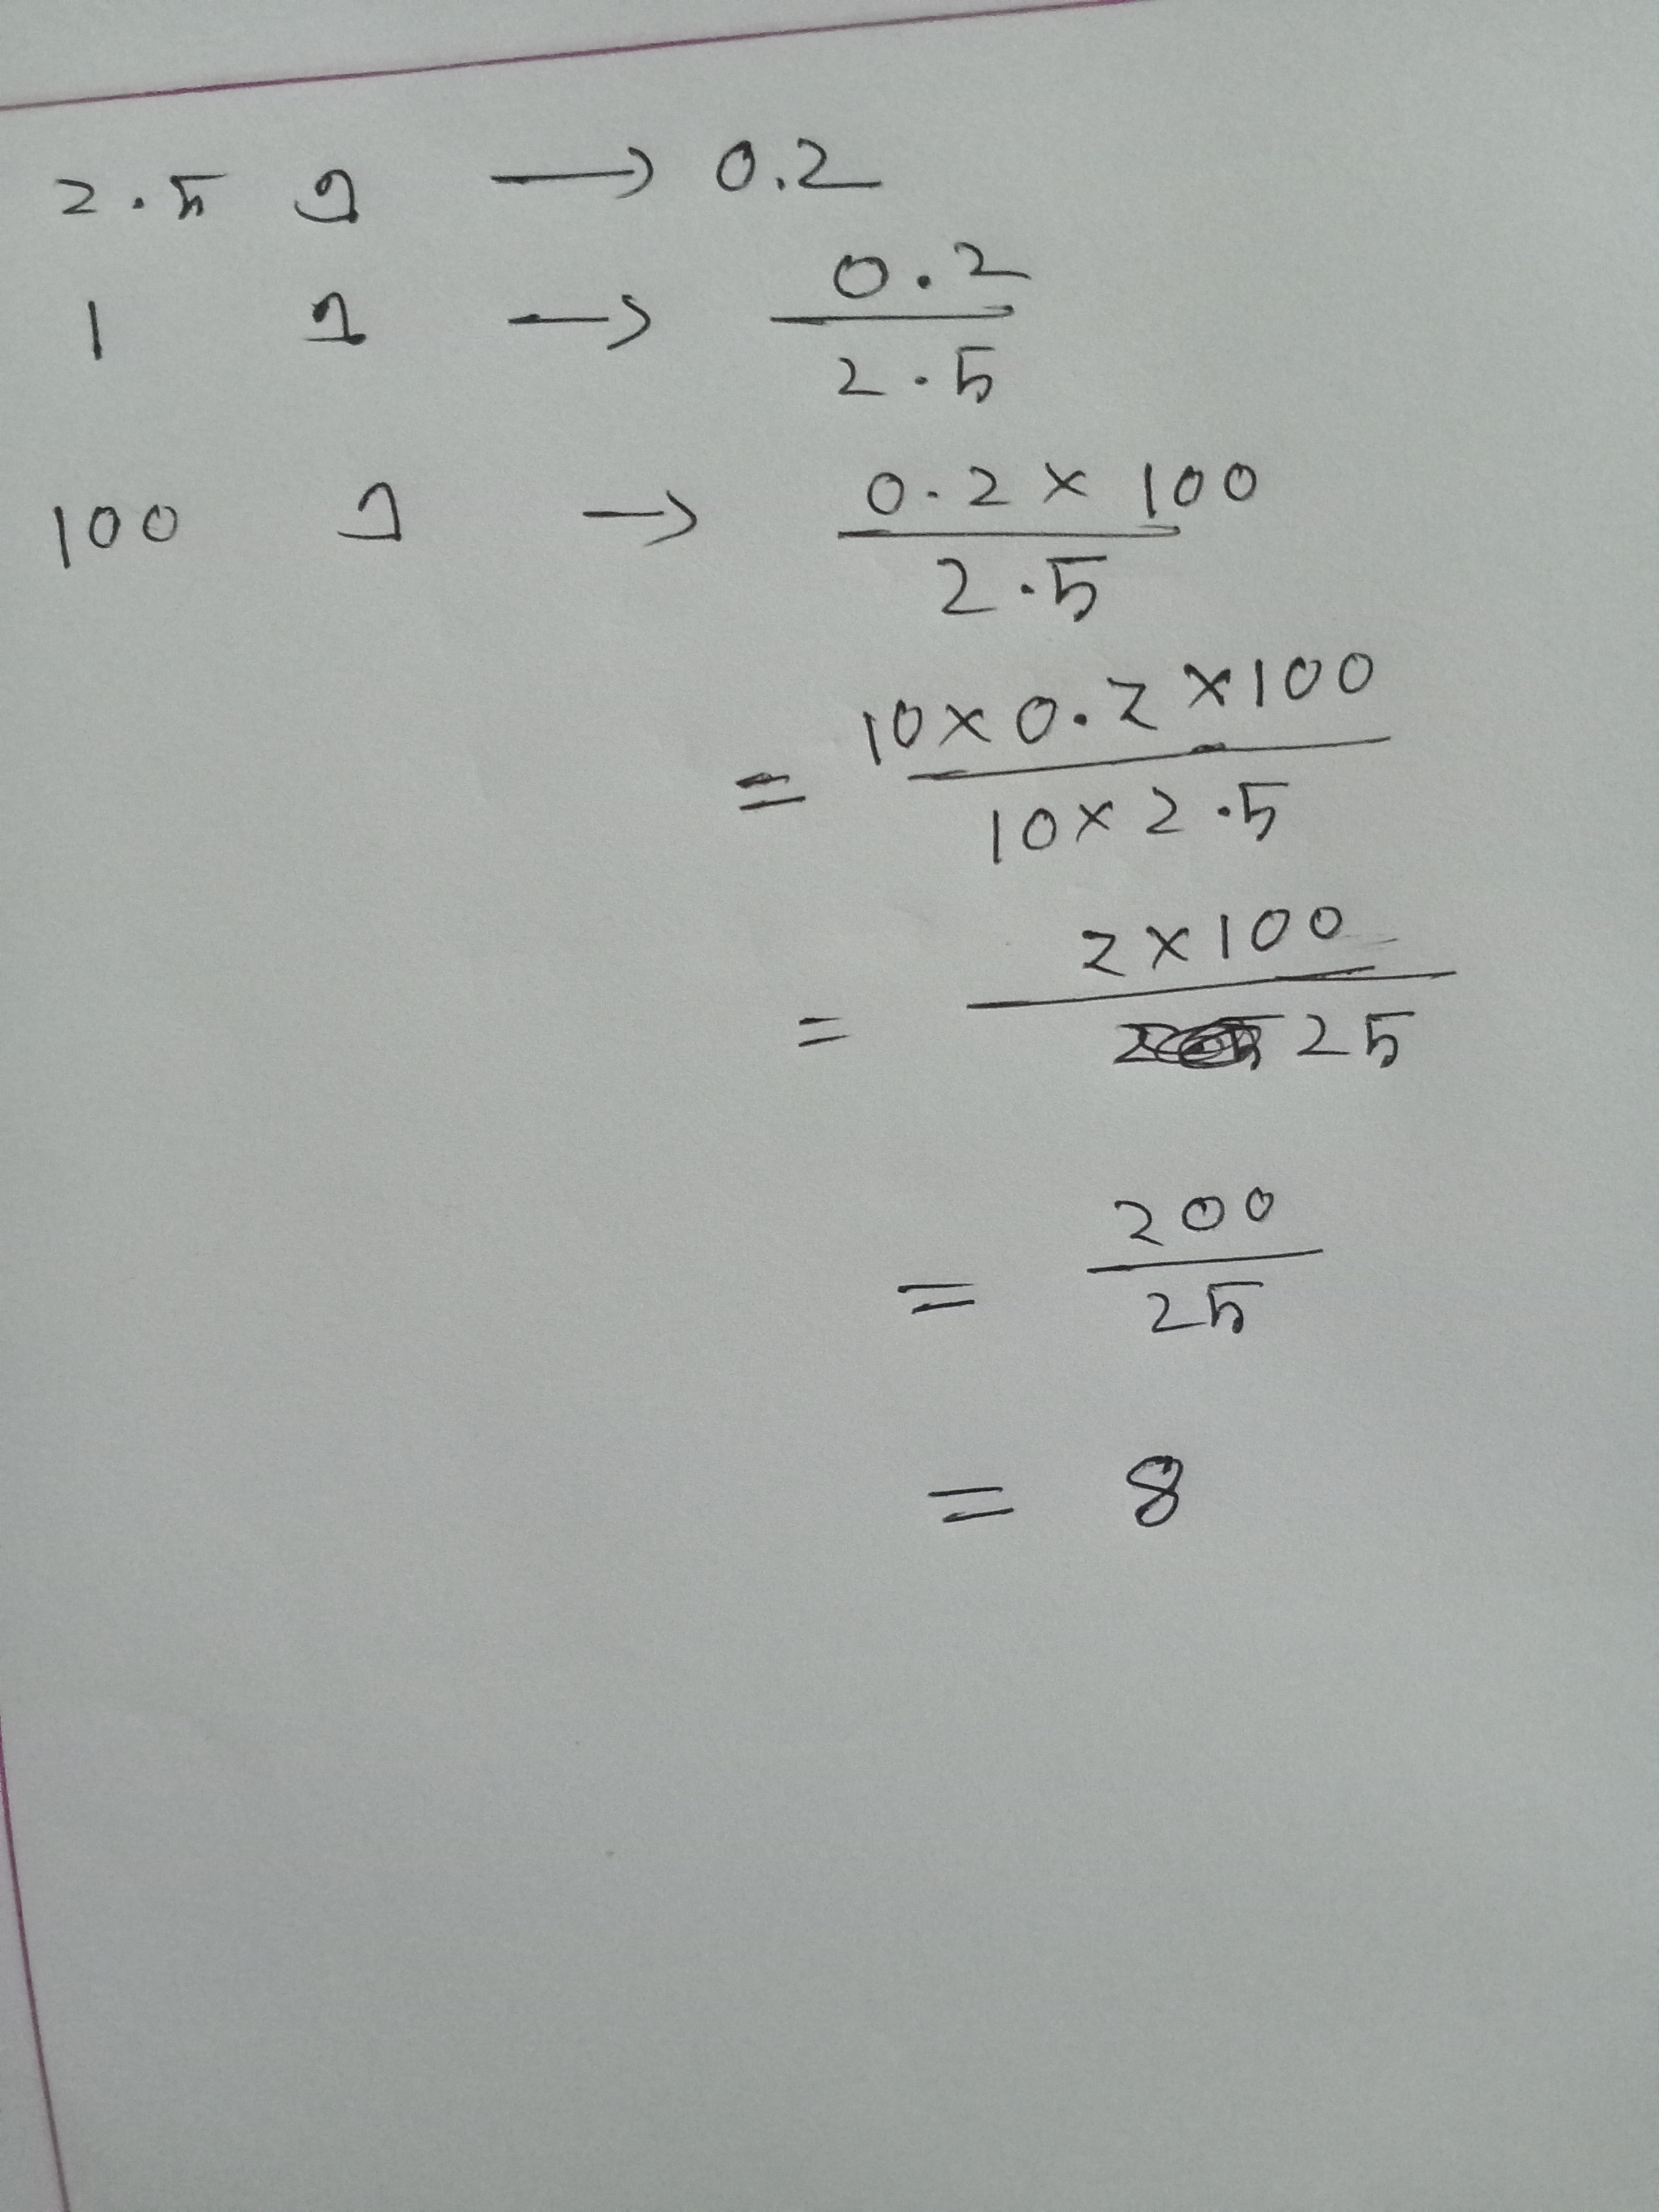 2.5 এ → 0.2
1 এ → 0.2 / 2.5
100 এ → 0.2 × 100 / 2.5
= 10 × 0.2 × 100 / 10 × 2.5
= 2 × 100 / 25
= 200 / 25
= 8